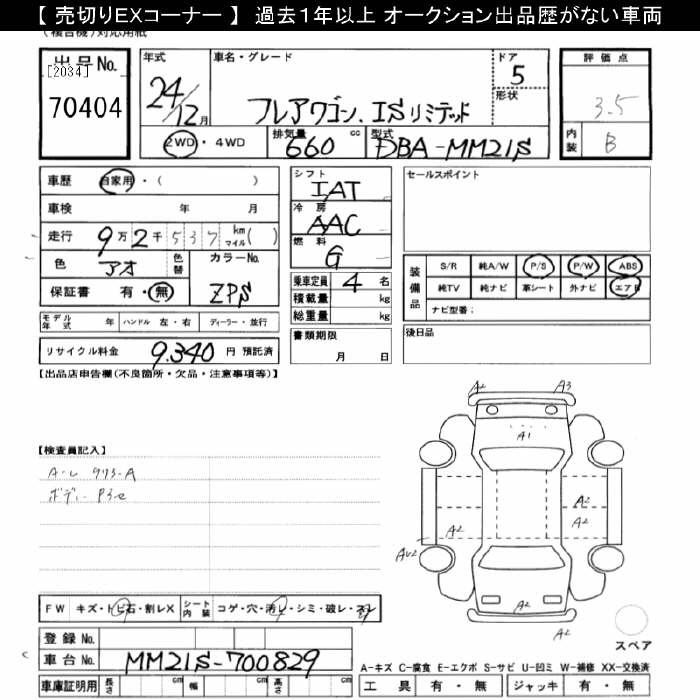 【 売切りEXコーナー 】 過去１年以上 オークション出品歴がない車両
出品No.
[2034]
70404
年式
24/12月
車名・グレード
フレアワゴン、ISリミテッド
ドア
5
形状
評価点
3.5
内装
B
2WD・4WD
排気量
660
cc
型式
DBA-MM21S
車歴 自家用・( )
車検 年 月
走行 9万2千537 km マイル( )
色 アオ
色替
カラーNo.
ZPS
保証書 有・無
モデル年式 年 ハンドル 左・右 ディーラー・並行
リサイクル料金 9.340 円 預託済
シフト
IAT
冷房
AAC
燃料
G
乗車定員 4 名
積載量 kg
総重量 kg
書類期限
月 日
セールスポイント
装備品
S/R 純A/W P/S P/W ABS
純TV 純ナビ 革シート 外ナビ エアB
ナビ型番：
後日品
【出品店申告欄(不良箇所・欠品・注意事項等)】
【検査員記入】
A2 A3
A1
A2
A2 A2
AU2
A2
A2
スペア
FW キズ・トビ石・割レX
シート内装 コゲ・穴・汚レ・シミ・破レ・スレ
登録No.
車台No. MM21S-700829
車庫証明用 長さ cm 幅 cm 高さ cm
A-キズ C-腐食 E-エクボ S-サビ U-凹ミ W-補修 XX-交換済
工具 有・無 ジャッキ 有・無